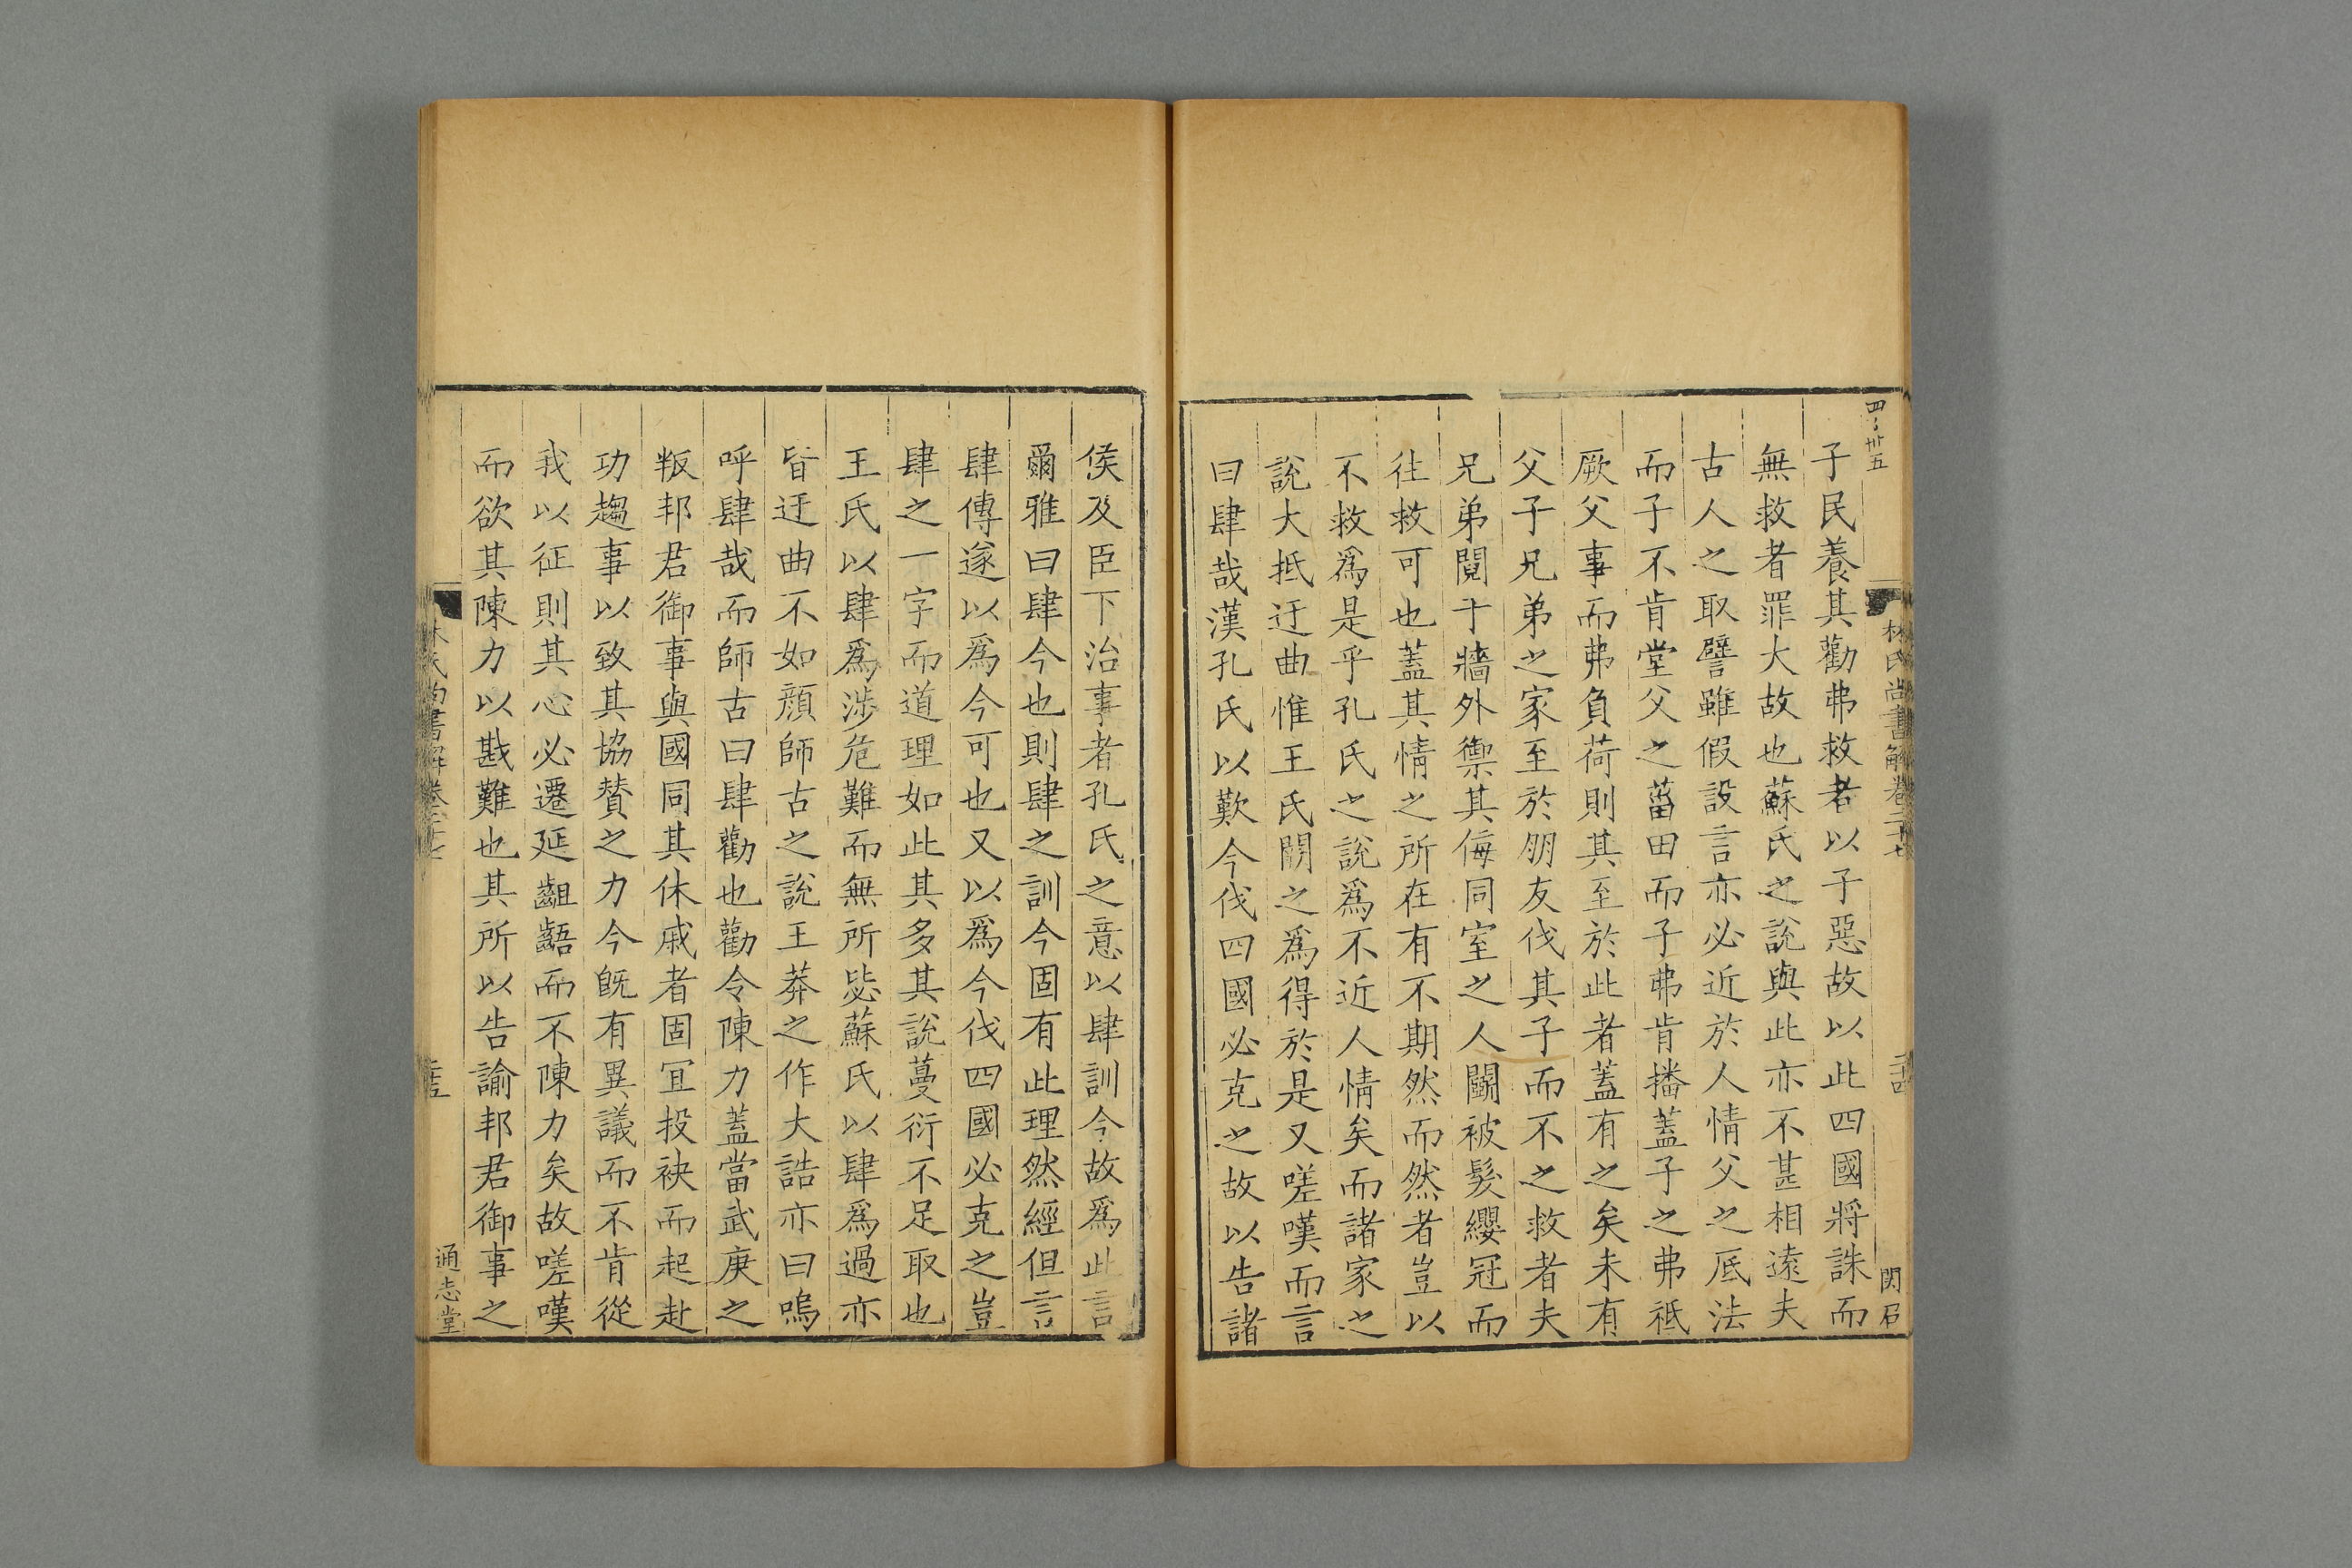 四卅五
林氏尚書解卷二十七
関召
子民養其勸弗救者以子惡故以此四國將誅而
無救者罪大故也蘇氏之說與此亦不甚相遠夫
古人之取譬雖假設言亦必近於人情父之厎法
而子不肯堂父之菑田而子弗肯播蓋子之弗祗
厥父事而弗負荷則其至於此者蓋有之矣未有
父子兄弟之家至於朋友伐其子而不之救者夫
兄弟鬩于牆外禦其侮同室之人鬬被髮纓冠而
往救可也蓋其情之所在有不期然而然者豈以
不救爲是乎孔氏之說爲不近人情矣而諸家之
說大抵迂曲惟王氏闕之爲得於是又嗟嘆而言
曰肆哉漢孔氏以歎今伐四國必克之故以告諸
侯及臣下治事者孔氏之意以肆訓今故爲此言
爾雅曰肆今也則肆之訓今固有此理然經但言
肆傳遂以爲今可也又以爲今伐四國必克之豈
肆之一字而道理如此其多其說蔓衍不足取也
王氏以肆爲涉危難而無所毖蘇氏以肆爲過亦
皆迂曲不如顏師古之說王莽之作大誥亦曰嗚
呼肆哉而師古曰肆勸也勸令陳力蓋當武庚之
叛邦君御事與國同其休戚者固宜投袂而起赴
功趨事以致其協贊之力今旣有異議而不肯從
我以征則其心必遷延齟齬而不陳力矣故嗟嘆
而欲其陳力以戡難也其所以告諭邦君御事之
林氏尚書解卷二十七
通志堂